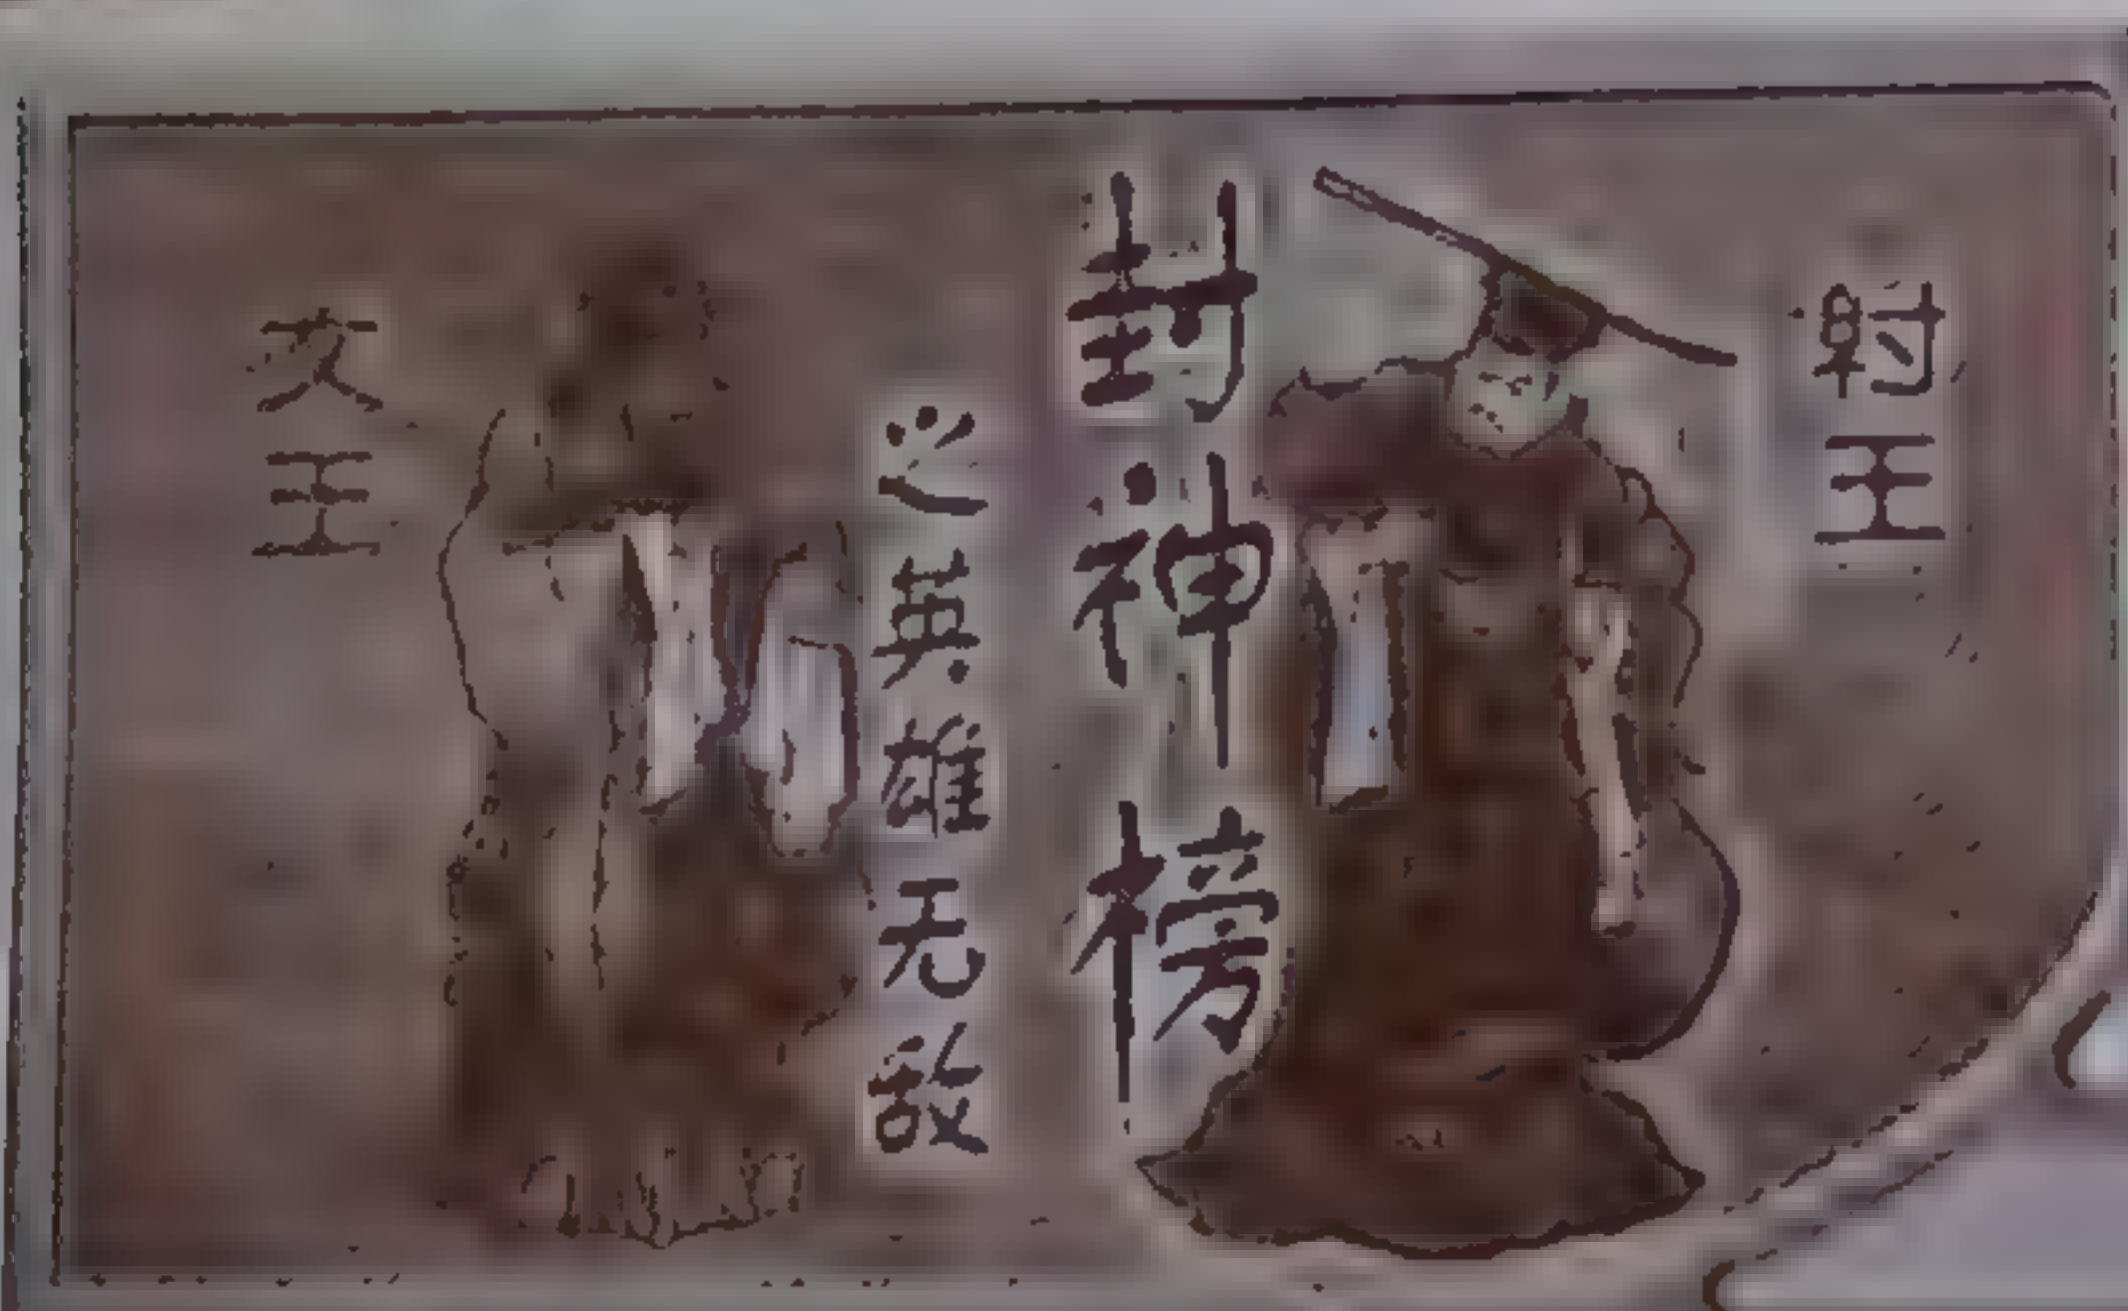 紂王
封神榜
之英雄无敌
文王